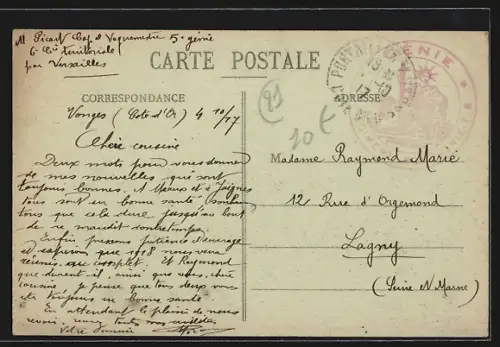 M Picart Cap. d Vaguemestre 5e génie
6e Cie territoriale
par Versailles
CARTE POSTALE
CORRESPONDANCE
ADRESSE
PONTAILLER
GENIE
91
10 €
Vonges (Côte d'Or) 4 10/17
Chère cousine
Deux mots pour vous donner
de mes nouvelles qui sont
toujours bonnes. A Meaux et à Jaignes
tous sont en bonne santé,
tous que cela dure jusqu'au bout
de ce maudit contretemps.
Enfin prenons patience et courage
et espérons que 1918 nous verra
réunis au complet. Et Raymond
que devient-il, ainsi que vous, chère
cousine, je pense que tous deux vous
êtes toujours en bonne santé.
En attendant le plaisir de nous
revoir,
Votre cousin
Madame Raymond Marié
12 Rue d'Orgemond
Lagny
(Seine et Marne)